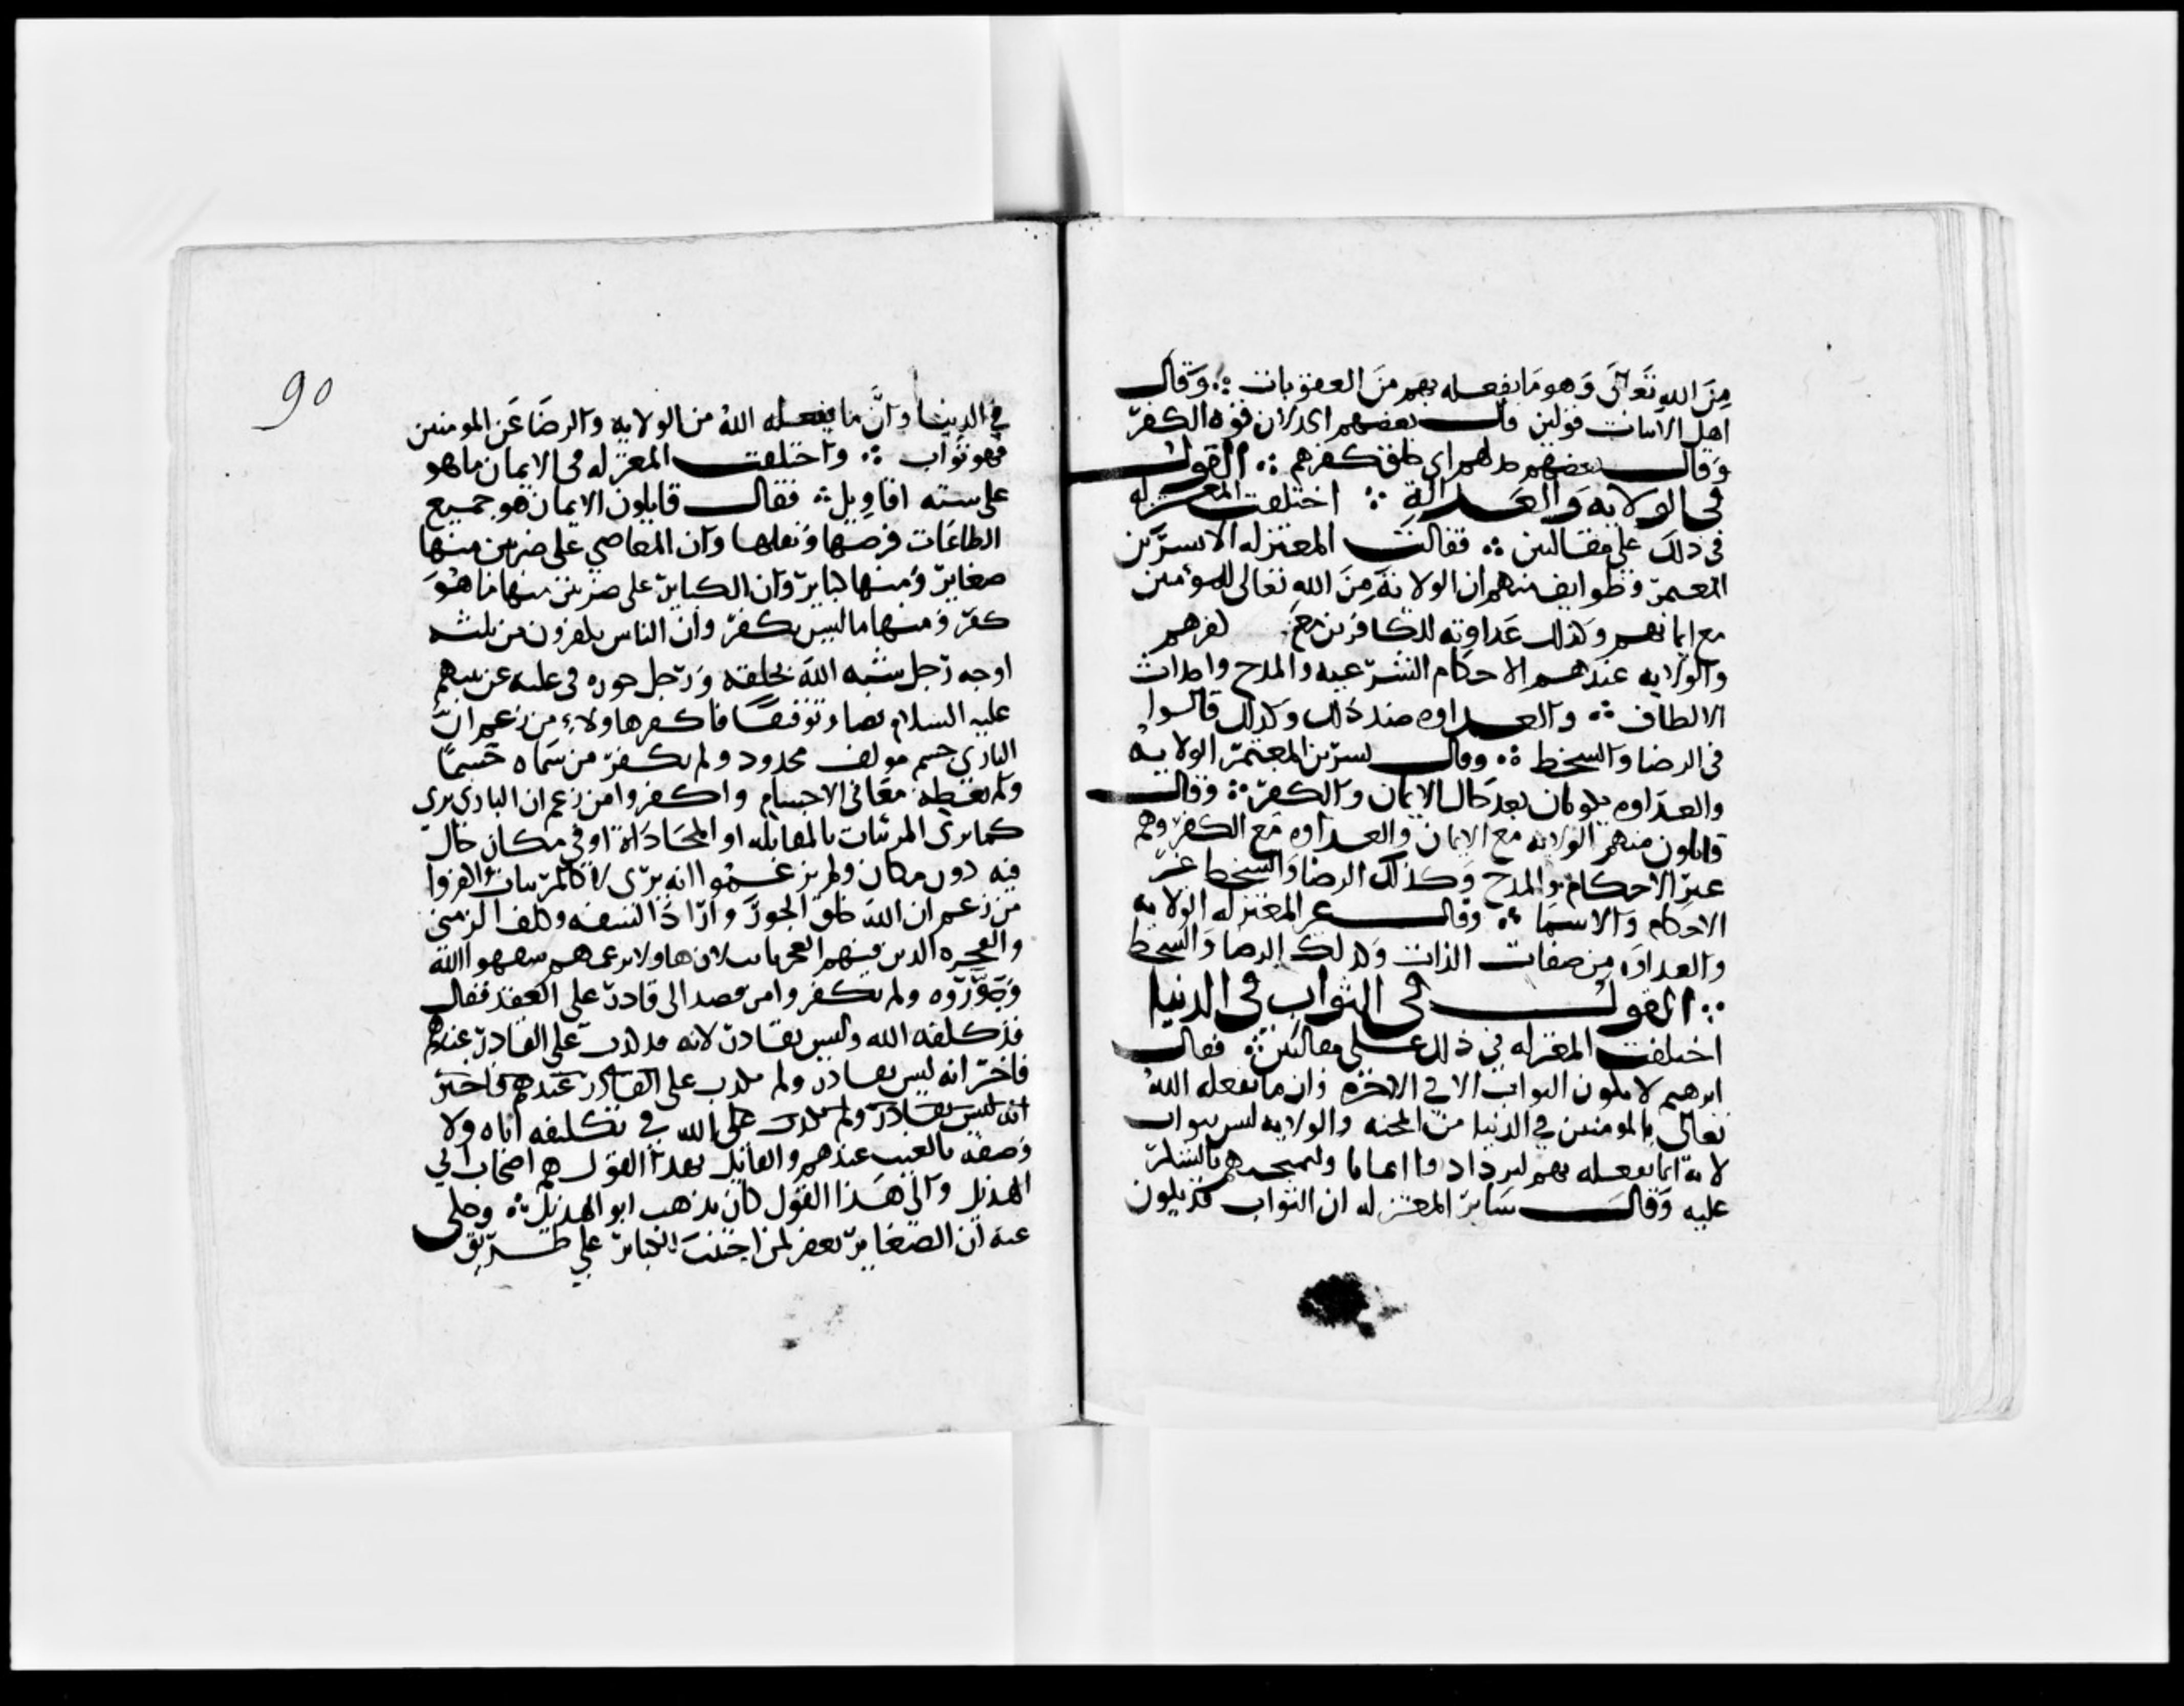 من الله تعالى وهو ما يفعله بهم من العقوبات ∴ وقال
اهل الاثبات قولين قال بعضهم اى لان قوه الكفر
وقال بعضهم خذلهم اى خلق كفرهم ∴ القول
فى الولايه والعداوة ∴ اختلفت المعتزله
فى ذلك على مقالتين ∴ فقالت المعتزله الا بشر بن
المعتمر وطوايف منهم ان الولاية من الله تعالى للمؤمنين
مع ايمانهم وكذلك عداوته للكافرين مع كفرهم
والولايه عندهم الاحكام الشرعيه والمدح واحداث
الالطاف ∴ والعداوه ضد ذلك وكذلك قالوا
فى الرضا والسخط ∴ وقال بشر بن المعتمر الولايه
والعداوه يكونان بعد حال الايمان والكفر ∴ وقال
قايلون منهم الولايه مع الايمان والعداوه مع الكفر وهم
غير الاحكام والمدح وكذلك الرضا والسخط غير
الاحكام والاسما ∴ وقال غير المعتزله الولايه
والعداوه من صفات الذات وكذلك الرضا والسخط
∴ القول فى الثواب فى الدنيا
اختلفت المعتزله في ذلك على مقالتين ∴ فقال
ابرهيم لا يكون الثواب الا في الاخره وان ما يفعله الله
تعالى بالمومنين في الدنيا من المحنه والولايه ليس بثواب
لانه انما يفعله بهم ليزدادوا ايمانا وليمتحنهم بالشكر
عليه وقال ساير المعتزله ان الثواب قد يكون
90
في الدنيا وان ما يفعله الله من الولايه والرضا عن المومنين
فهو ثواب ∴ واختلفت المعتزله فى الايمان ما هو
على سته اقاويل ∴ فقال قايلون الايمان هو جميع
الطاعات فرضها ونفلها وان المعاصي على ضربين منها
صغاير ومنها كباير وان الكباير على ضربين منها ما هو
كفر ومنها ما ليس بكفر وان الناس يكفرون من ثلثه
اوجه رجل شبه الله بخلقه ورجل جوره فى حكمه
عليه السلام نصا وتوقيفا فاكفر هاولاء من زعم ان
البارى جسم مولف محدود ولم يكفر من سماه جسما
ولم يعطه معانى الاجسام واكفروا من زعم ان البارى يرى
كما ترى المرئيات بالمقابله او المحاذاة او فى مكان حال
فيه دون مكان ولم يزعموا انه يرى لا كالمرئيات واكفروا
من زعم ان الله خلق الجور واراد السفه وكلف الزمنى
والعجزه الذين فيهم العجز ثابت لان هاولاء بزعمهم سفهوا الله
وجوروه ولم يكفروا من قصد الى قادر على الفعل فقال
قد كلفه الله وليس بقادر لانه قد كذب على القادر عندهم
فاخبر انه ليس بقادر ولم يكذب على القادر عندهم فاخبر
انه ليس بقادر ولم يكذب على الله في تكليفه اياه ولا
وصفه بالعبث عندهم والقايل بهذا القول هم اصحاب ابي
الهذيل والى هذا القول كان يذهب ابو الهذيل ∴ وحكى
عنه ان الصغاير تغفر لمن اجتنب الكباير على طريق